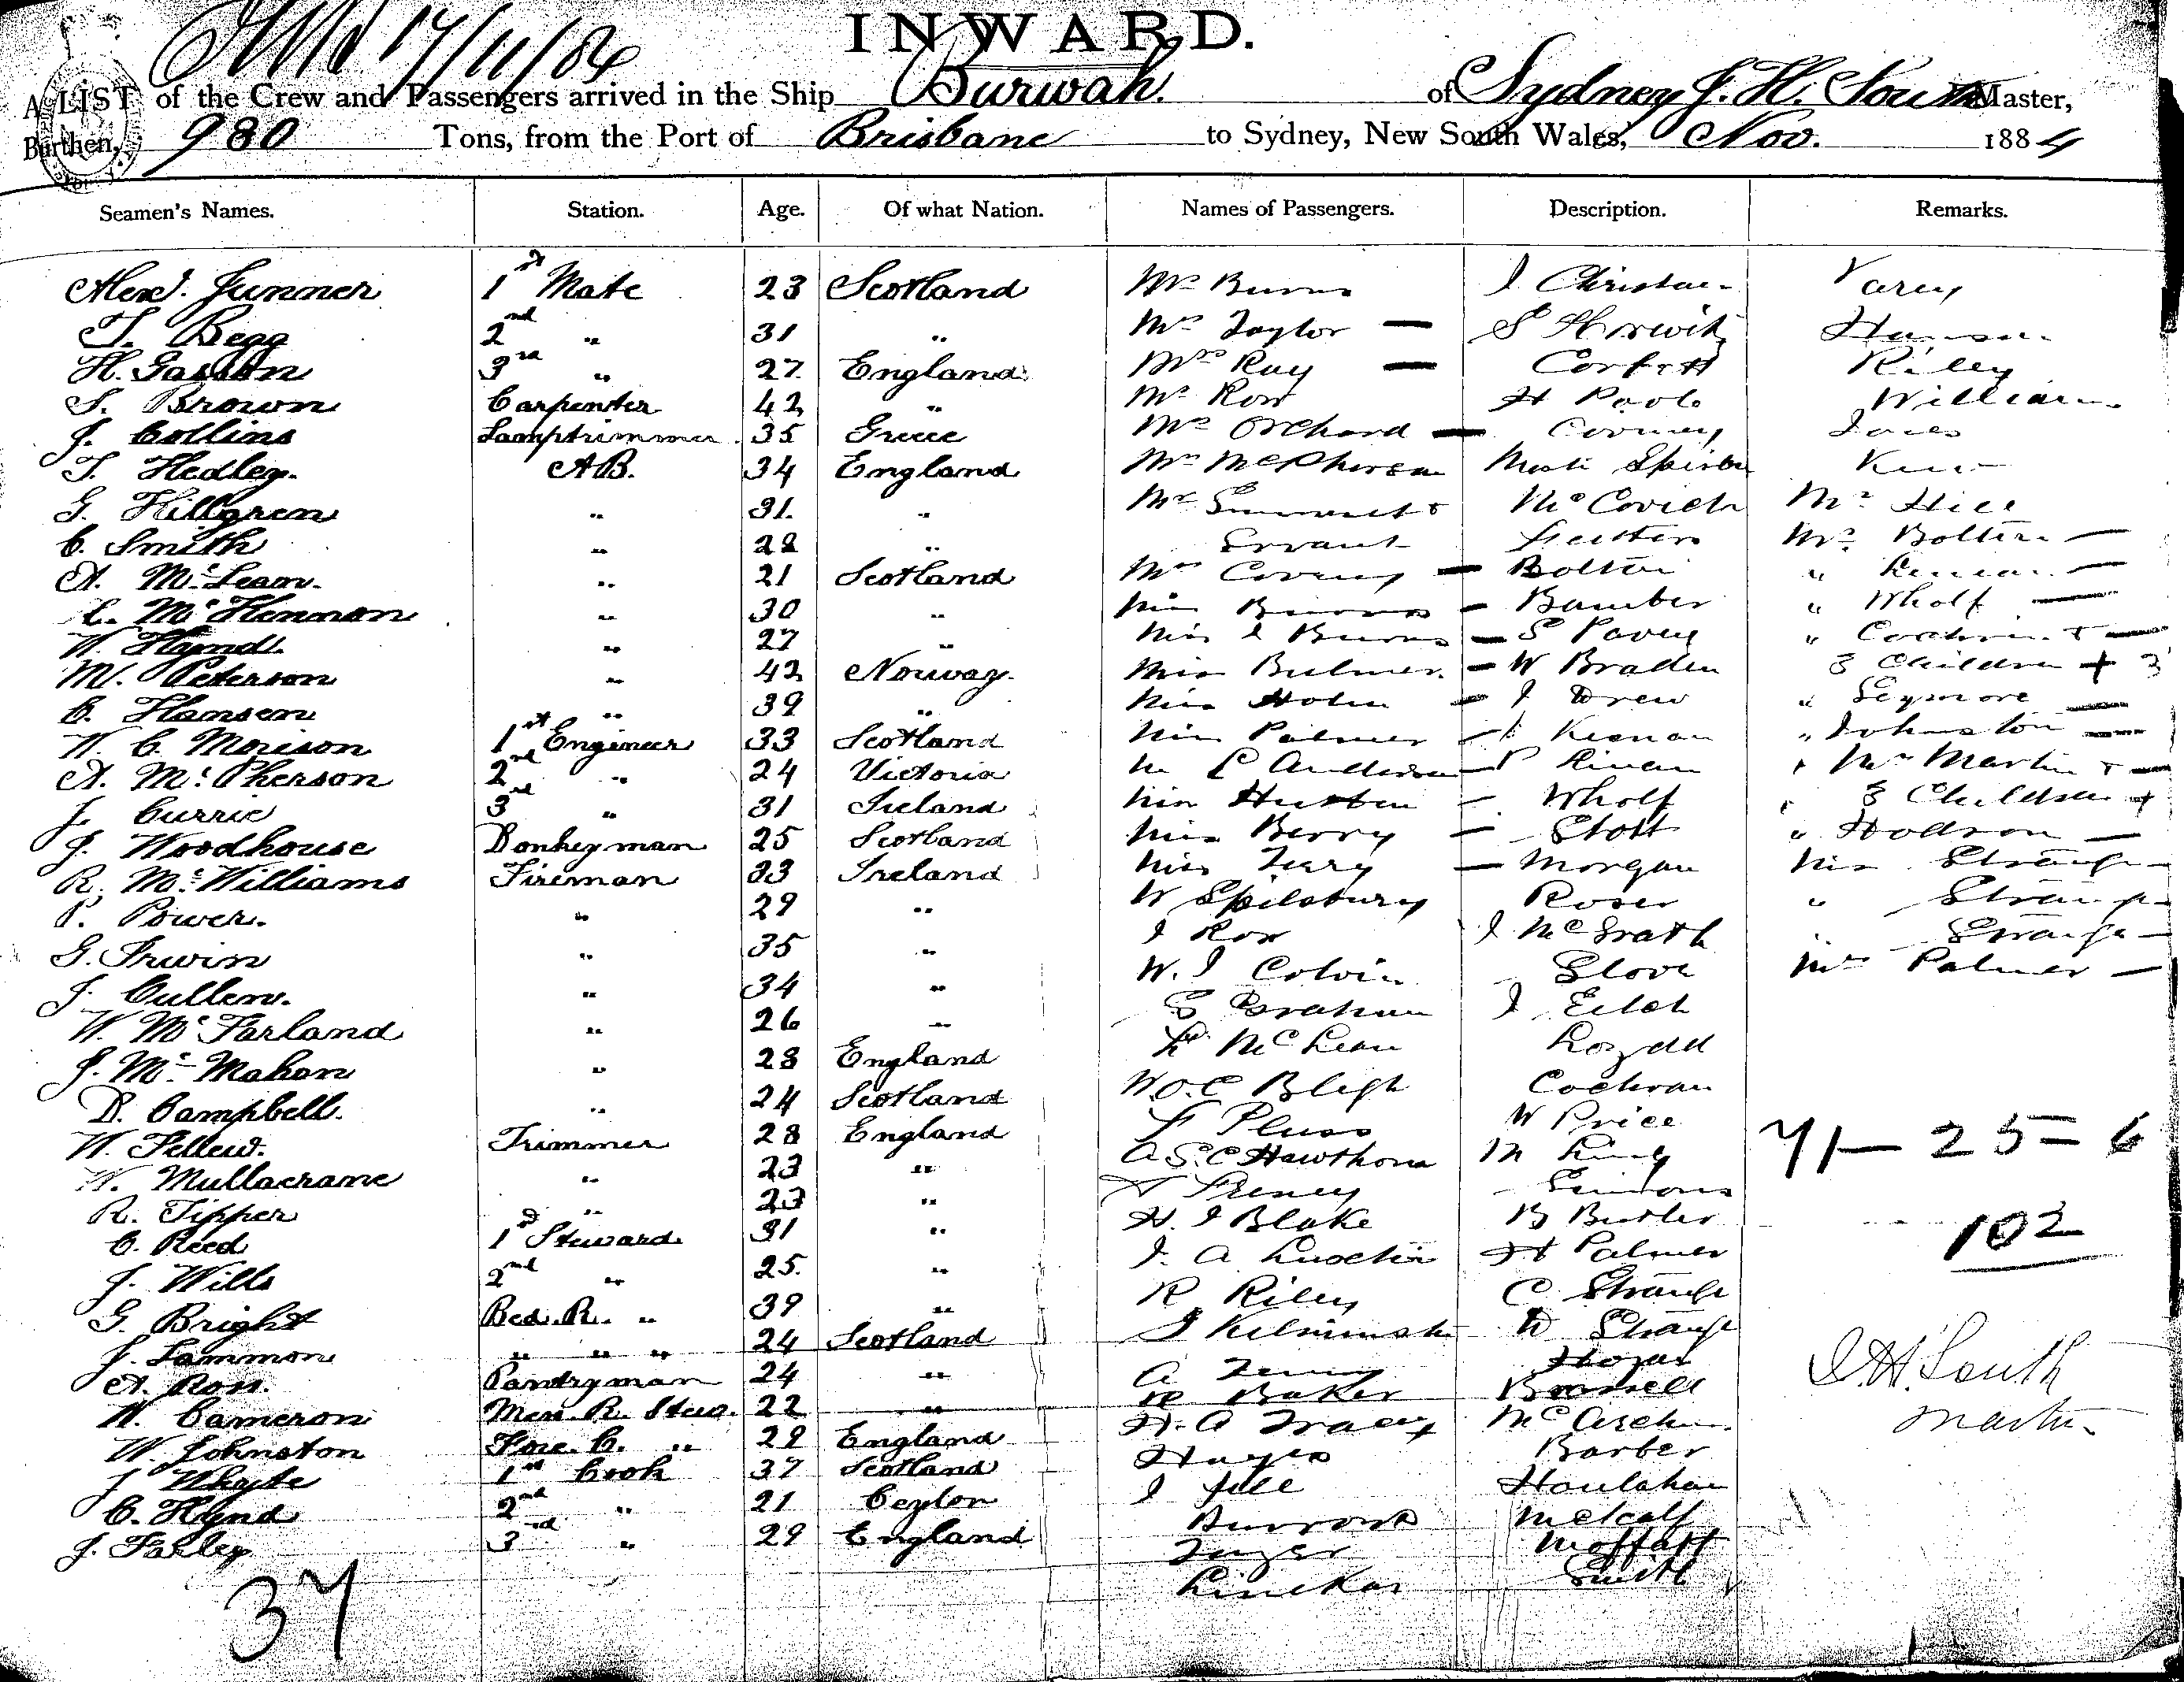 17/11/84
INWARD.
A LIST of the Crew and Passengers arrived in the Ship Burwah. of Sydney J. H. South Master,
Burthen, 980 Tons, from the Port of Brisbane to Sydney, New South Wales, Nov. 1884
Seamen's Names. Station. Age. Of what Nation. Names of Passengers. Description. Remarks.
Alexr. Junner 1st Mate 23 Scotland Mr Burns J Christian Varey
T. Begg 2nd " 31 " Mrs Taylor — S Horwitz
H. Gasson 3rd " 27 England Mrs Ray — Corfett Riley
S. Brown Carpenter 42 " Mr Row H Poole Williams
J. Collins Lamptrimmer 35 Greece Mrs Orchard — Cooney Jones
T. Hedley. A.B. 34 England Mr McPherson
G. Hillgren " 31. " Mr McCovich Mr Hill
C. Smith " 28 " Servant Mrs Bolton —
A. McLean. " 21 Scotland Mrs — Bolton "
L. McKinnon " 30 " Miss Burns — Bamber " Wholf —
W. Hynd. " 27 " Miss J Burns — S Pavey " Cochrin + —
M. Peterson " 42 Norway. Miss Bulmer. — W Braden 3 Children + 3
C. Hansen " 39 " Miss Holm — J Drew " Seymore —
W. C. Morison 1st Engineer 33 Scotland Miss Palmer — Kienan " Johnston —
A. McPherson 2nd " 24 Victoria C Anderson — " Mrs Martin + —
J. Currie 3rd " 31 Ireland Miss Huston — Wholf " 3 Children +
J. Woodhouse Donkeyman 25 Scotland Miss Berry — Stott " Hodson —
R. McWilliams Fireman 33 Ireland Miss Terry — Morgan Miss Strange —
P. Power. " 29 " W Spilsbury Roser " Strange —
G. Irwin " 35 " J Rox J McGrath " Strange —
J. Cullen. " 34 " W. J Colvin Glove Mrs Palmer —
W. McFarland " 26 " G Graham J
J. McMahon " 28 England McLean
D. Campbell. " 24 Scotland W.O.C Bligh Cochran
W. Fellew. Trimmer 28 England F Pluss W Price 71 — 25 = 6
W. Mullacrane " 23 " A S.C Hawthorn M King
R. Tipper " 23 " Freney Simons
C. Reed 1st Steward. 31 " H. J Blake B Butler 102
J. Wills 2nd " 25. " J. A H Palmer
G. Bright Bed. R. " 39 " R Riley C Strange
J. Sammon " " " 24 Scotland J D Strange
A. Ross. Pantryman 24 " A J. H. South
W. Cameron Mess. R. Stew. 22 " Baker Master
W. Johnston Fore. C. " 29 England H. A Tracey Barber
J Whyte 1st Cook 37 Scotland Hayes Houlahan
C. Hynd 2nd " 21 Ceylon J Metcalf
J. Farley 3rd " 29 England Burrows Moffatt
Linekar Smith
37